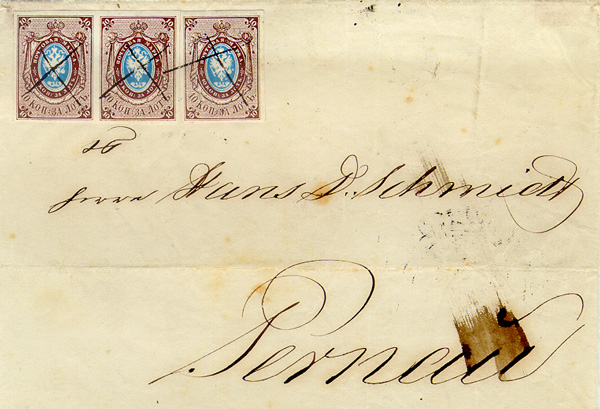 10 КОП. ЗА ЛОТЪ 10 КОП. ЗА ЛОТЪ 10 КОП. ЗА ЛОТЪ
Herrn Hans D. Schmidt
Pernau